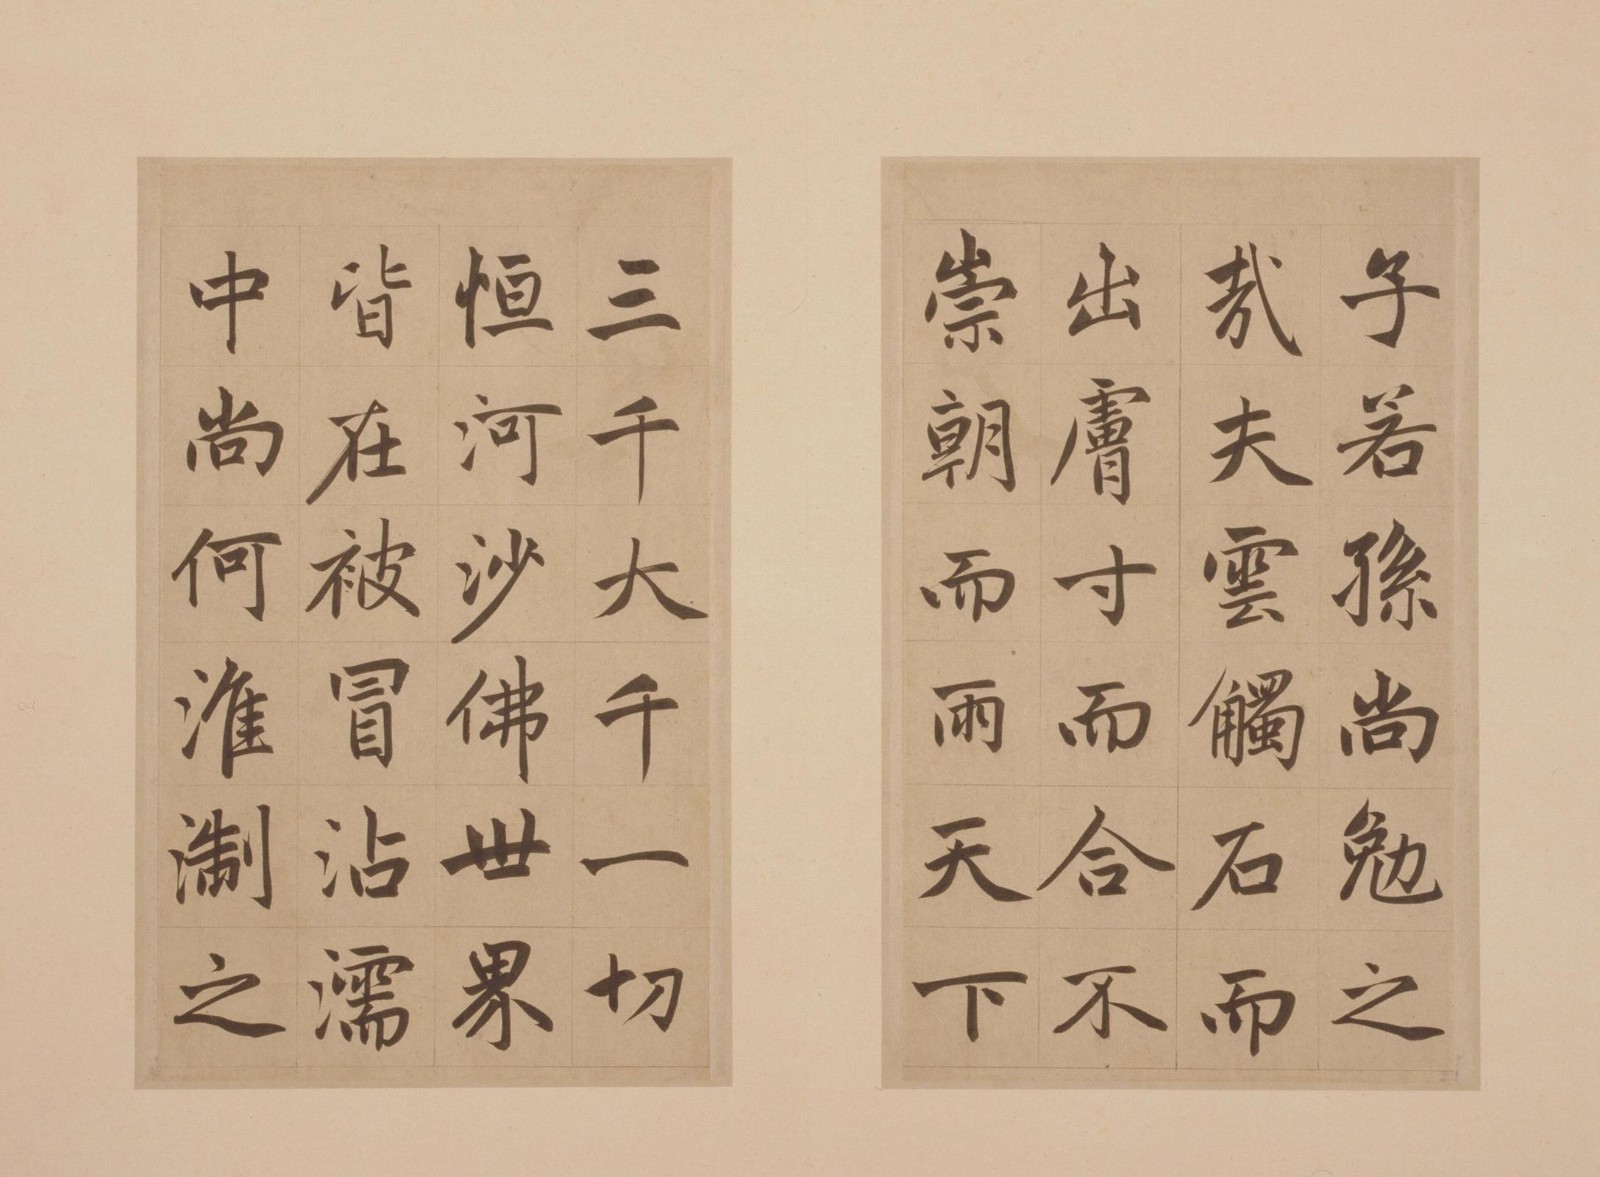 子若孫尚勉之
哉夫雲觸石而
出膚寸而合不
崇朝而雨天下
三千大千一切
恒河沙佛世界
皆在被冒沾濡
中尚何淮淛之